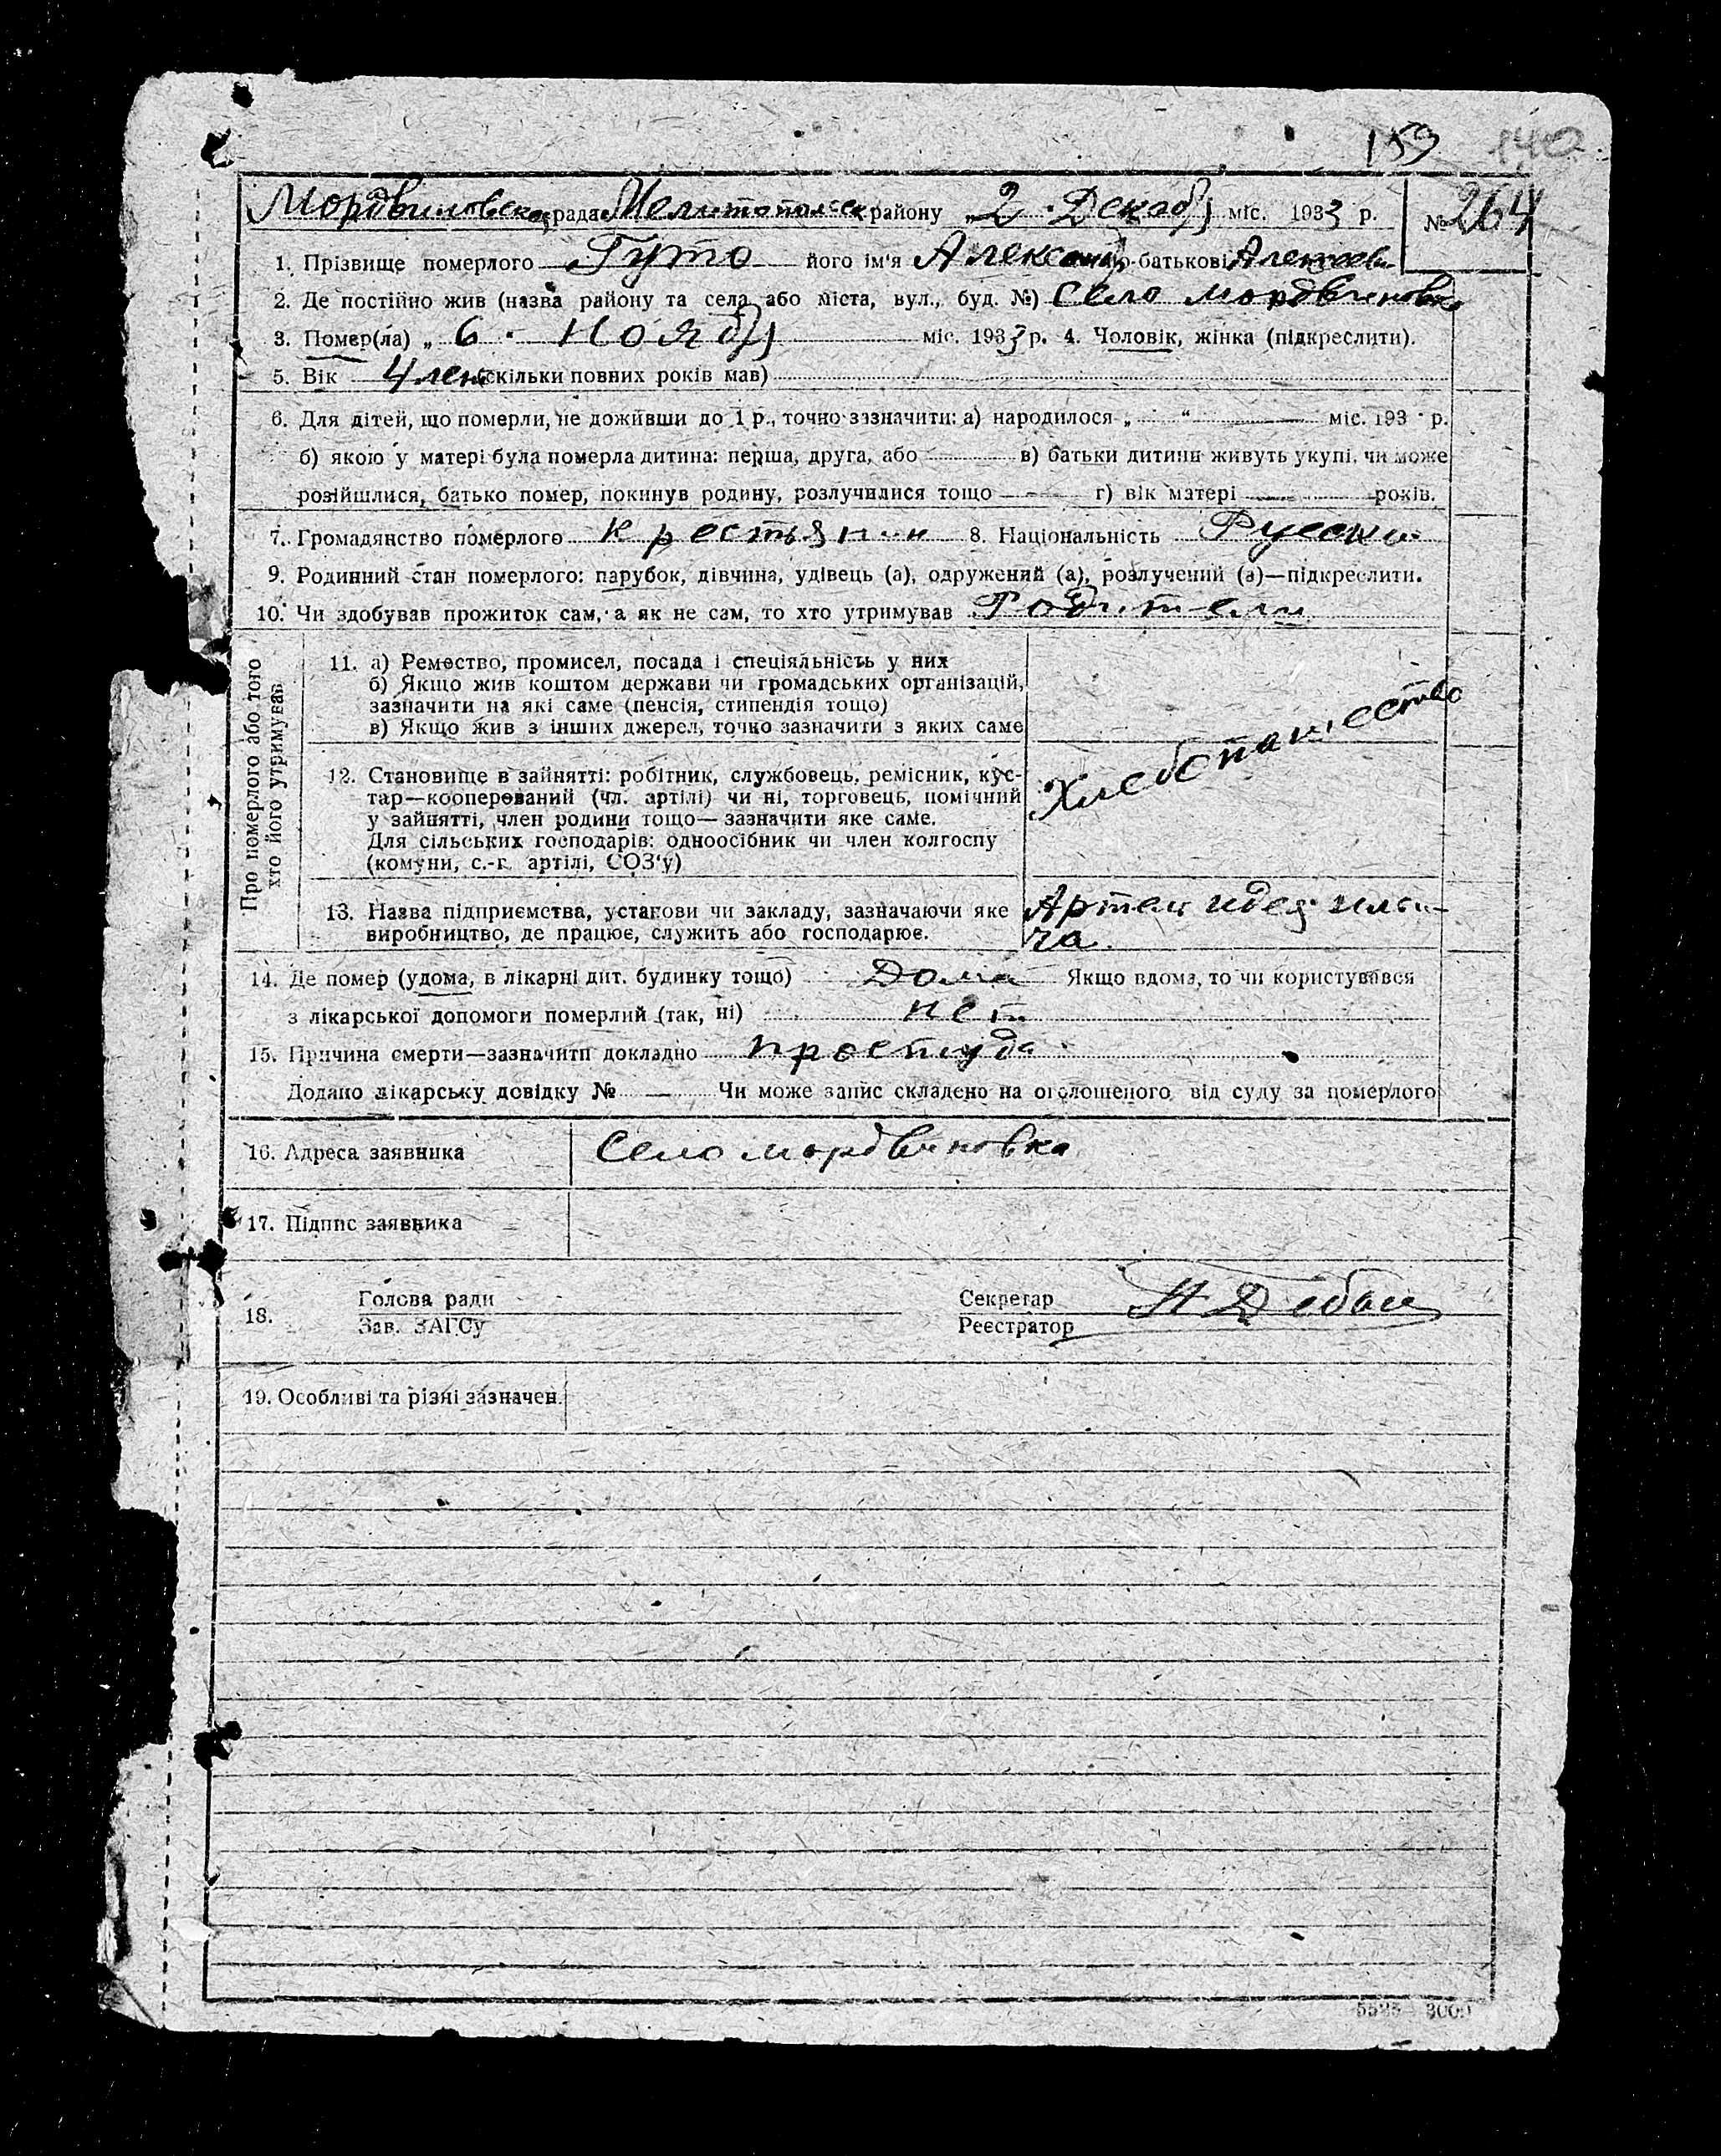 159 140
Мордвиновская рада Мелитопольск району „2 Декабр міс. 1933 р. № 264
1. Прізвище померлого Гуто його ім'я Александ по-батькові Алексеев
2. Де постійно жив (назва району та села або міста, вул., буд. №) Село Мордвиновка
3. Помер(ла) „ 6 Ноябр міс. 1933 р. 4. Чоловік, жінка (підкреслити).
5. Вік 4 лет (скільки повних років мав)
6. Для дітей, що померли, не доживши до 1 р., точно зазначити: а) народилося „ “ міс. 193 р.
б) якою у матері була померла дитина: перша, друга, або в) батьки дитини живуть укупі, чи може
розійшлися, батько помер, покинув родину, розлучилися тощо г) вік матері років.
7. Громадянство померлого крестьянин 8. Національність Русски
9. Родинний стан померлого: парубок, дівчина, удівець (а), одружений (а), розлучений (а)—підкреслити.
10. Чи здобував прожиток сам, а як не сам, то хто утримував Родители
Про померлого або того
хто його утримував
11. а) Ремество, промисел, посада і спеціяльність у них
б) Якщо жив коштом держави чи громадських організацій,
зазначити на які саме (пенсія, стипендія тощо)
в) Якщо жив з інших джерел, точно зазначити з яких саме
Хлебопашество
12. Становище в зайнятті: робітник, службовець, ремісник, кус-
тар—кооперований (чл. артілі) чи ні, торговець, помічний
у зайнятті, член родини тощо— зазначити яке саме.
Для сільських господарів: одноосібник чи член колгоспу
(комуни, с.-г. артілі, СОЗ'у)
13. Назва підприємства, установи чи закладу, зазначаючи яке Артель идея ильи-
виробництво, де працює, служить або господарює. ча.
14. Де помер (удома, в лікарні дит. будинку тощо) Дома Якщо вдома, то чи користувався
з лікарської допомоги померлий (так, ні) нет
15. Причина смерти—зазначити докладно простуда
Додано лікарську довідку № — Чи може запис складено на оголошеного від суду за померлого
16. Адреса заявника Село мордвиновка
17. Підпис заявника
18. Голова ради Секретар
Зав. ЗАГСу Реєстратор
19. Особливі та різні зазначен.
5525 3000